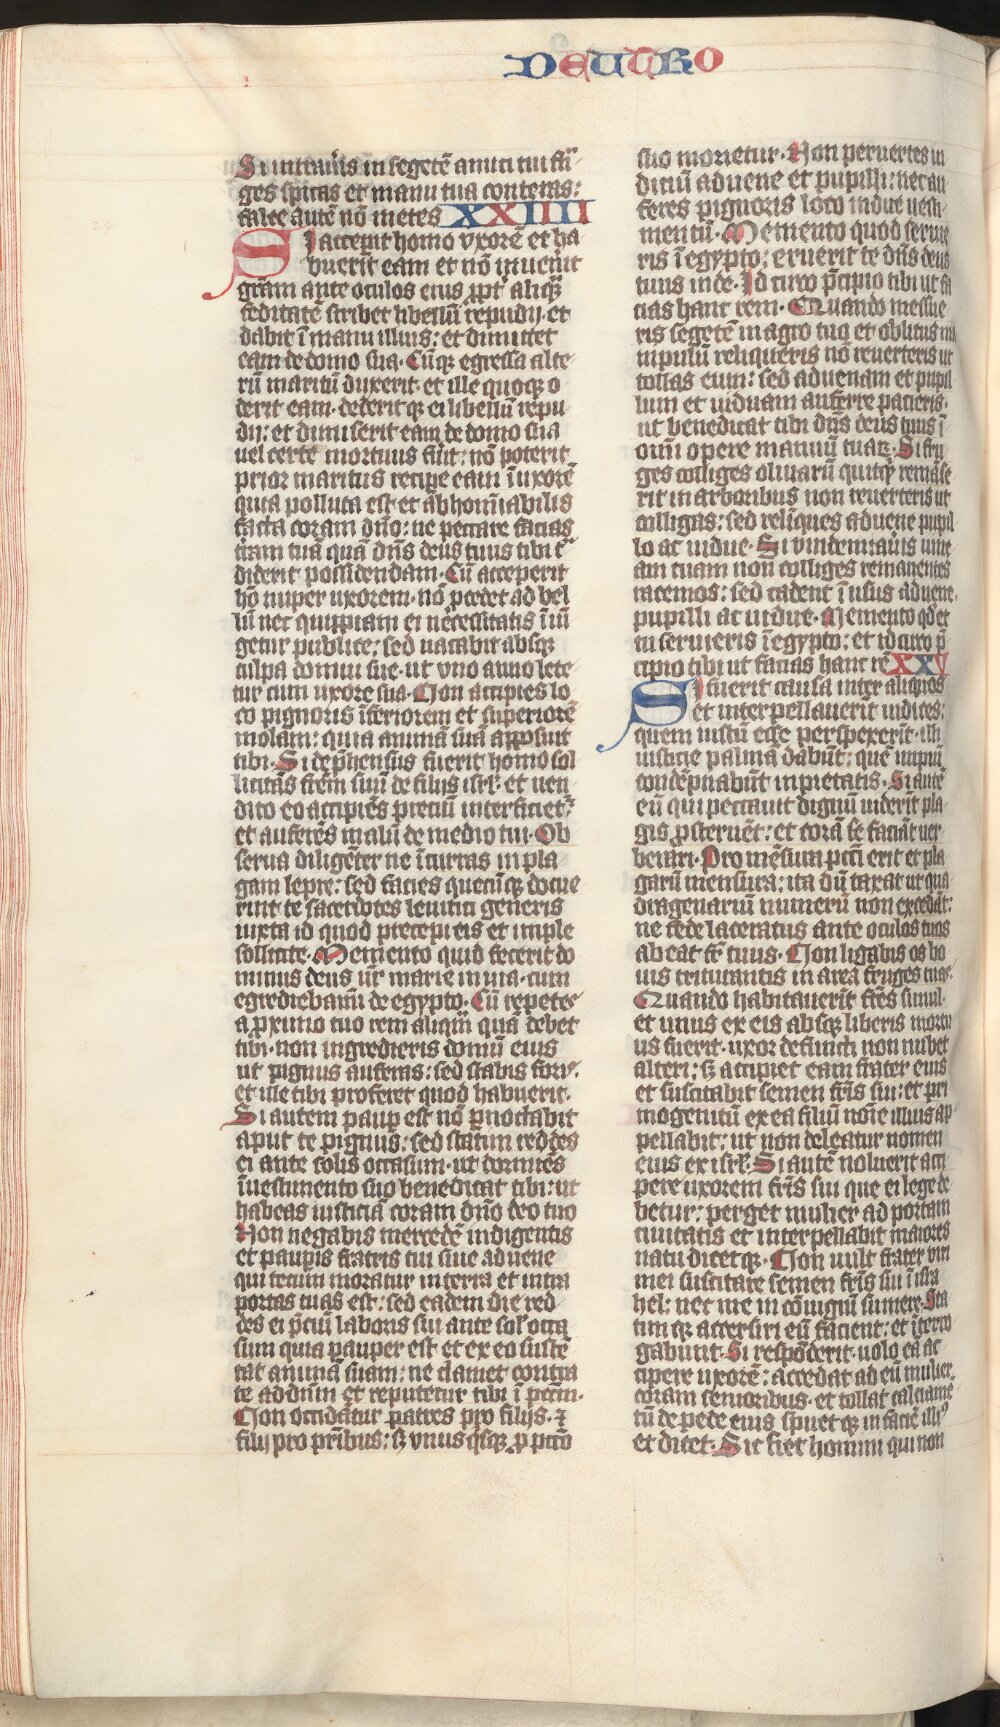 DEUTRO
Si intraueris in segetē amici tui frā
ges spicas et manu tua conteras:
falce autē nō metes XXIIII
Si acceperit homo vxorē et ha
buerit eam et nō inuenit
grām ante oculos eius ꝓpt̄ aliqᵃ
feditatē scribet libellū repudij et
dabit ī manu illius: et dimittet
eam de domo sua. Cūqꝫ egressa alte
rū maritū duxerit et ille quoqꝫ o
derit eam. dederitqꝫ ei libellū repu
dij: et dimiserit eam de domo sua
uel certe mortuus fūit: nō poterit
prior maritus recipe eam ī uxorē
quia polluta est et abhomīabilis
facta coram dn̄o: ne peccare facias
trām tuā quā dn̄s deus tuus tibi t̄
diderit possidendam. Cū acceperit
ho nuper uxorem. nō ꝓcedet ad bel
lū nec quippiam ei necessitatis ī iū
getur publice: sed uacabit absqꝫ
culpa domui sue. ut vno anno lete
tur cum uxore sua. Non accipies lo
co pignoris īferiorem et superiorē
molam: quia animā suā apposuit
tibi. Si dep̄hensus fuerit homo sol
licitās frēm suū de filijs isrl̄. et uen
dito eo accipiēs preciū interficiet᷑
et auferēs malū de medio tui. Ob
serua diligēter ne īcurras in pla
gam lepre: sed facies quecūqꝫ docue
rint te sacerdotes leuitici generis
iuxta id quod precepi eis et imple
sollicite. Memento quid fecerit do
minus deus ur̄ marie in uia. cum
egrediebamī de egypto. Cū repetes
a ꝓximo tuo rem aliqm̄ quā debet
tibi. non ingredieris domū eius
ut pignus auferas: sed stabis foris.
et ille tibi proferet quod habuerit.
Si autem paup est nō ꝑnoctabit
aput te pignus: sed statim reddes
ei ante solis occasum. ut dormiēs
ī uestimento suo benedicat tibi: ut
habeas iusticiā coram dn̄o deo tuo
Non negabis mercedē indigentis
et paupis fratris tui siue aduene
qui tecum moratur in terra et intra
portas tuas est: sed eadem die red
des ei p̄ciū laboris sui ante sol̄ occa
sum quia pauper est et ex eo susten̄
tat animā suam: ne clamet contra
te ad dn̄m et reputetur tibi ī pctm̄.
Non occidātur patres pro filijs. ⁊
filij pro prībus: sꝫ vnus qsqꝫ ꝓ pctō
suo morietur. Non peruertes iu
diciū aduene et pupilli: nec au
feres pignoris loco uidue uesti
mentū. Memento quod serue
ris ī egypto: eruerit te dn̄s deus
tuus inde. Idcirco p̄cipio tibi ut fa
cias hanc rem. Quando messue
ris segetē in agro tuo et oblitus ma
nipulū reliqueris nō reuerteris ut
tollas eum: sed aduenam et pupil
lum et uiduam auferre pacieris.
ut benedicat tibi dn̄s deus tuus ī
omī opere manuū tuaꝝ. Si fru
ges colliges oliuarū quitqꝫ remāse
rit in arboribus non reuerteris ut
colligas: sed reliques aduene pupil
lo ac uidue. Si vindemiaūis uine
am tuam non colliges remanentes
racemos: sed cadent ī usus aduene.
pupilli ac uidue. Memento qd̄ et
tu seruieris ī egypto: et idcirco p̄
cipio tibi ut facias hanc rē XXV
Si fuerit causa inter aliquos
et interpellauerit iudices:
quem iustū esse perspexerit. illi
iusticie palmā dabūt: quē impiū
condēpnabūt inpietatis. Si autē
eū qui peccauit dignū uiderīt pla
gis ꝓsternēt: et corā se faciāt uer
berari. Pro mēsum pcci erit et pla
garū mensura: ita dū taxat ut qua
dragenariū numerū non excedāt:
ne fede laceratus ante oculos tuos
abeat fr̄ tuus. Non ligabis os bo
uis triturantis in area fruges tuas.
Quando habitauerīt frēs simul.
et unus ex eis absqꝫ liberis mortu
us fuerit. uxor defuncti non nubet
alteri: sꝫ accipiet eam frater eius
et suscitabit semen frīs sui: et pri
mogenitū ex ea filiū nōīe illius ap
pellabit: ut non deleatur nomen
eius ex isrl̄. Si autē noluerit acci
pere uxorem frīs sui que ei lege de
betur: perget mulier ad portam
ciuitatis et interpellabit maiores
natu dicetqꝫ. Non uult frater viri
mei suscitare semen frīs sui ī isra
hel: nec me in cōiugiū sumere. Sta
timqꝫ accersiri eū facient: et īterro
gabunt. Si respōderit. nolo ea ac
cipere uxorē: accedat ad eū mulier.
coram senioribus. et tollat calciamē
tū de pede eius spuetqꝫ in facie illiꝰ
et dicet. Sic fiet homini qui non